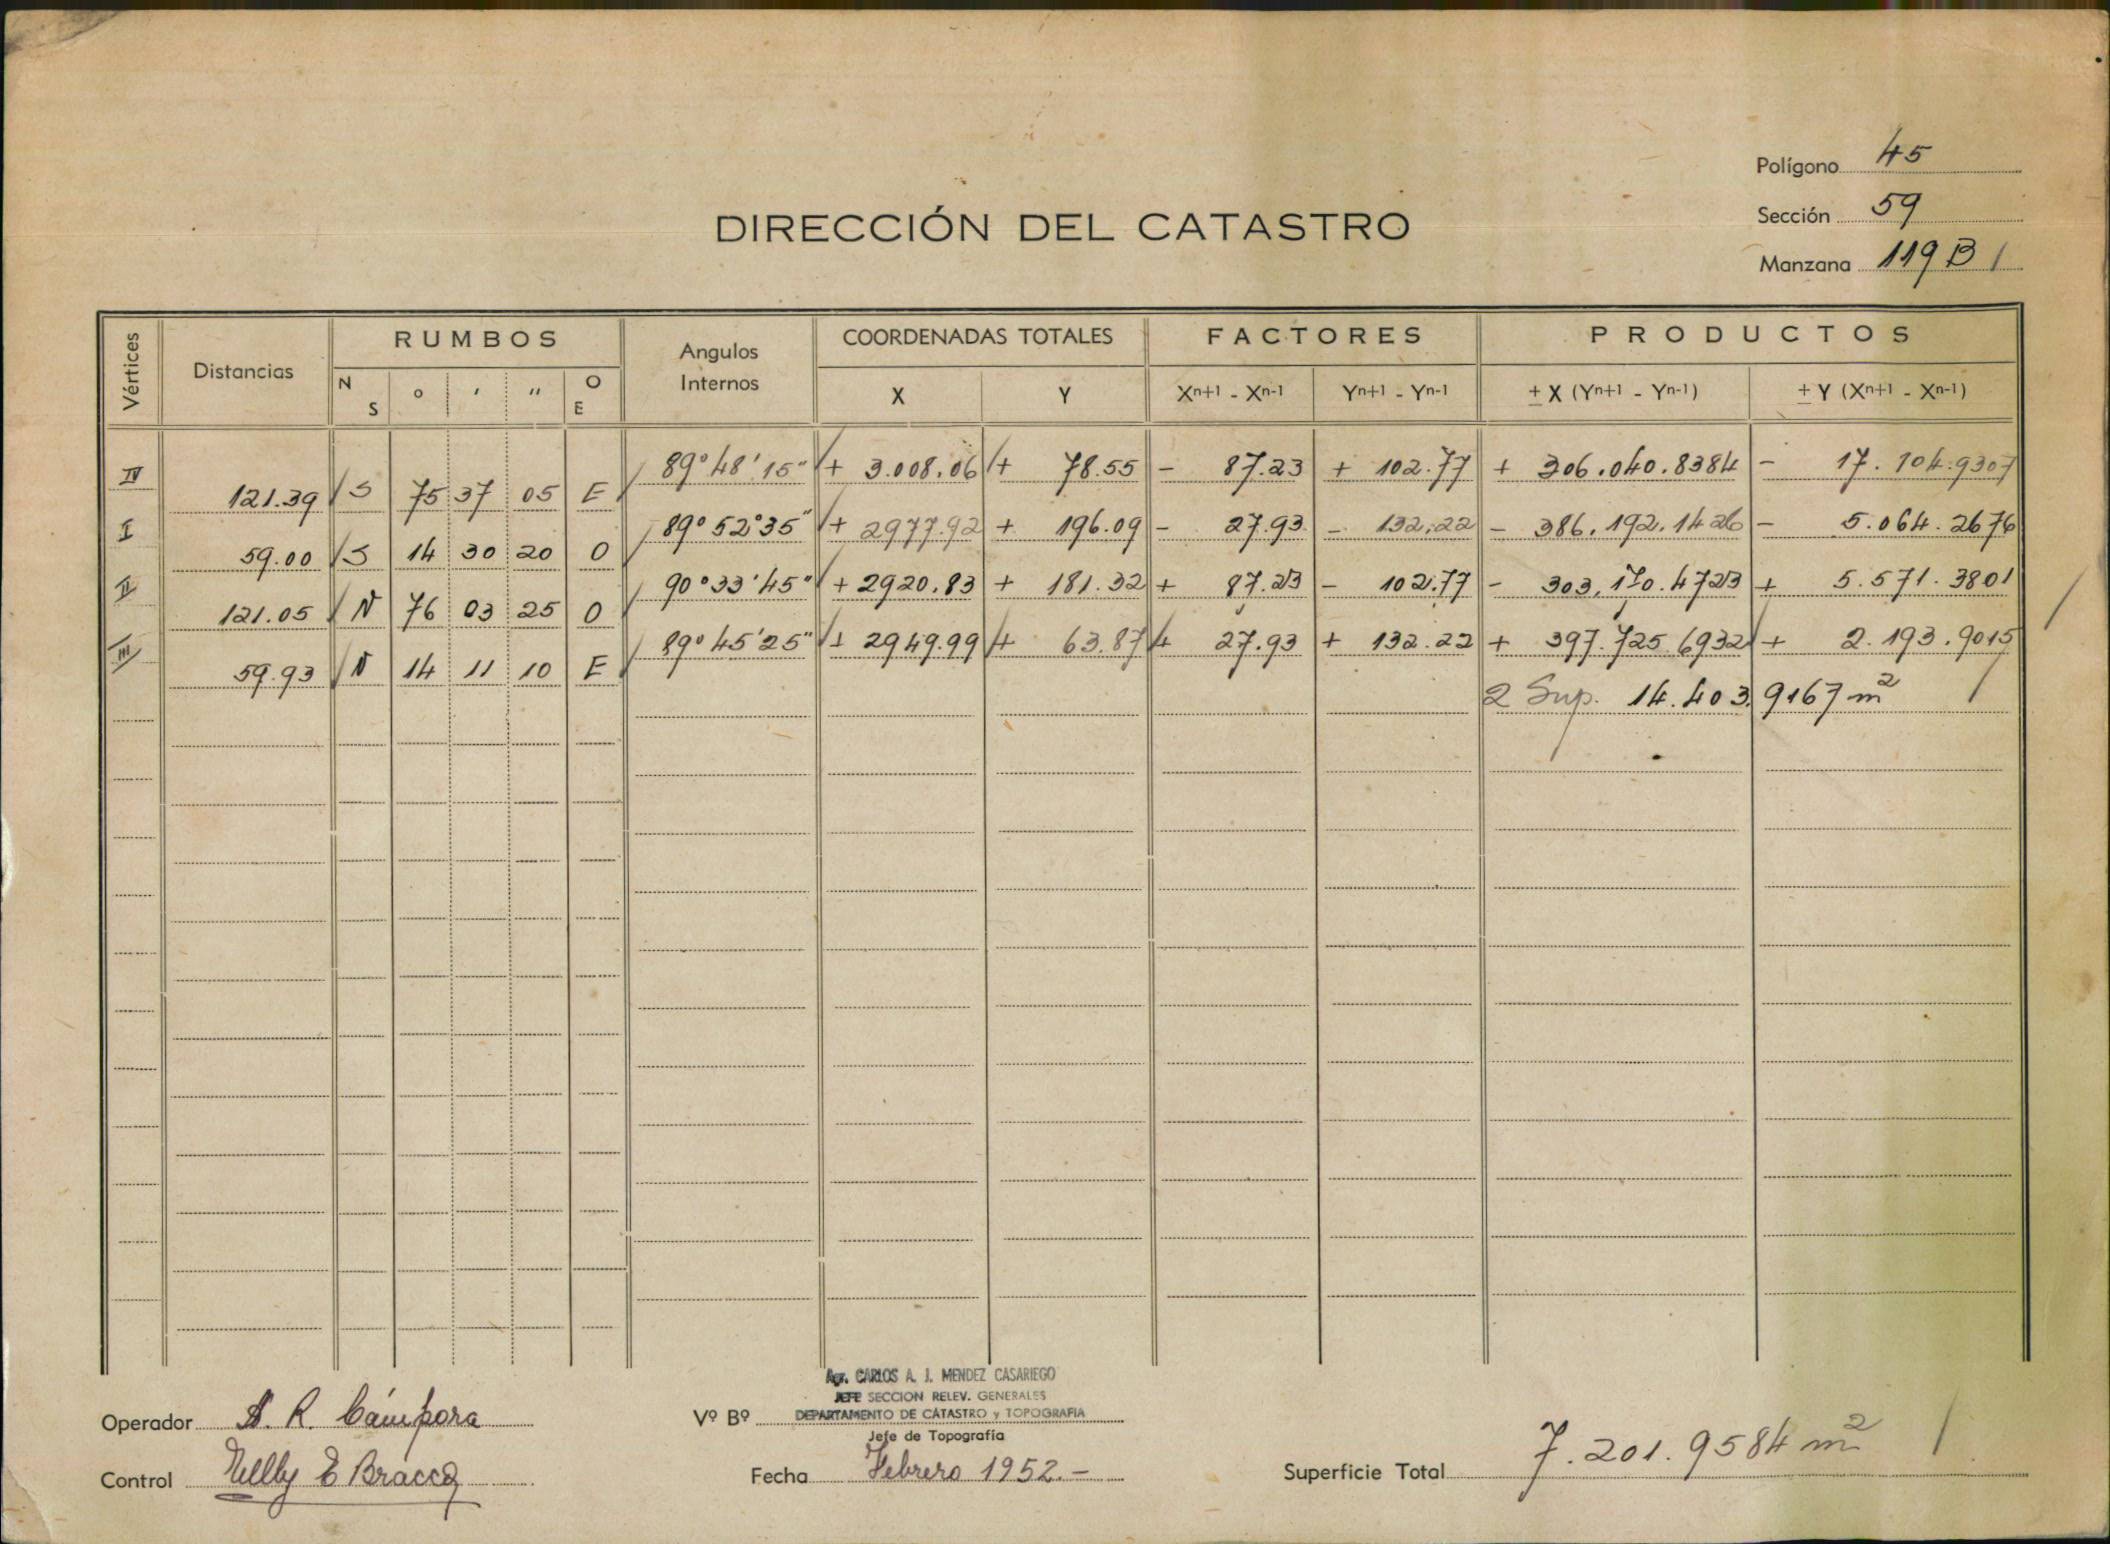 Polígono 45
DIRECCIÓN DEL CATASTRO
Sección 59
Manzana 119 B /
Vértices Distancias RUMBOS Angulos Internos COORDENADAS TOTALES FACTORES PRODUCTOS
N S ° ' " O E X Y Xn+1 - Xn-1 Yn+1 - Yn-1 ± X (Yn+1 - Yn-1) ± Y (Xn+1 - Xn-1)
IV 89° 48' 15" + 3.008.06 + 78.55 - 87.23 + 102.77 + 306.040.8384 - 17.104.9307
121.39 S 75 37 05 E
I 89° 52° 35" + 2977.92 + 196.09 - 27.93 - 132.22 - 386.192.1426 - 5.064.2676
59.00 S 14 30 20 O
II 90° 33' 45" + 2920.83 + 181.32 + 87.23 - 102.77 - 303.170.4723 + 5.571.3801
121.05 N 76 03 25 O
III 89° 45' 25" + 2949.99 + 63.87 + 27.93 + 132.22 + 397.725.6932 + 2.193.9015
59.93 N 14 11 10 E
2 Sup. 14.403.9167 m²
Agr. CARLOS A. J. MENDEZ CASARIEGO
JEFE SECCION RELEV. GENERALES
DEPARTAMENTO DE CATASTRO y TOPOGRAFIA
Operador A. R. Cámpora Vº Bº
Jefe de Topografía
Control Nelly E Bracco Fecha Febrero 1952.- Superficie Total 7.201.9584 m² /